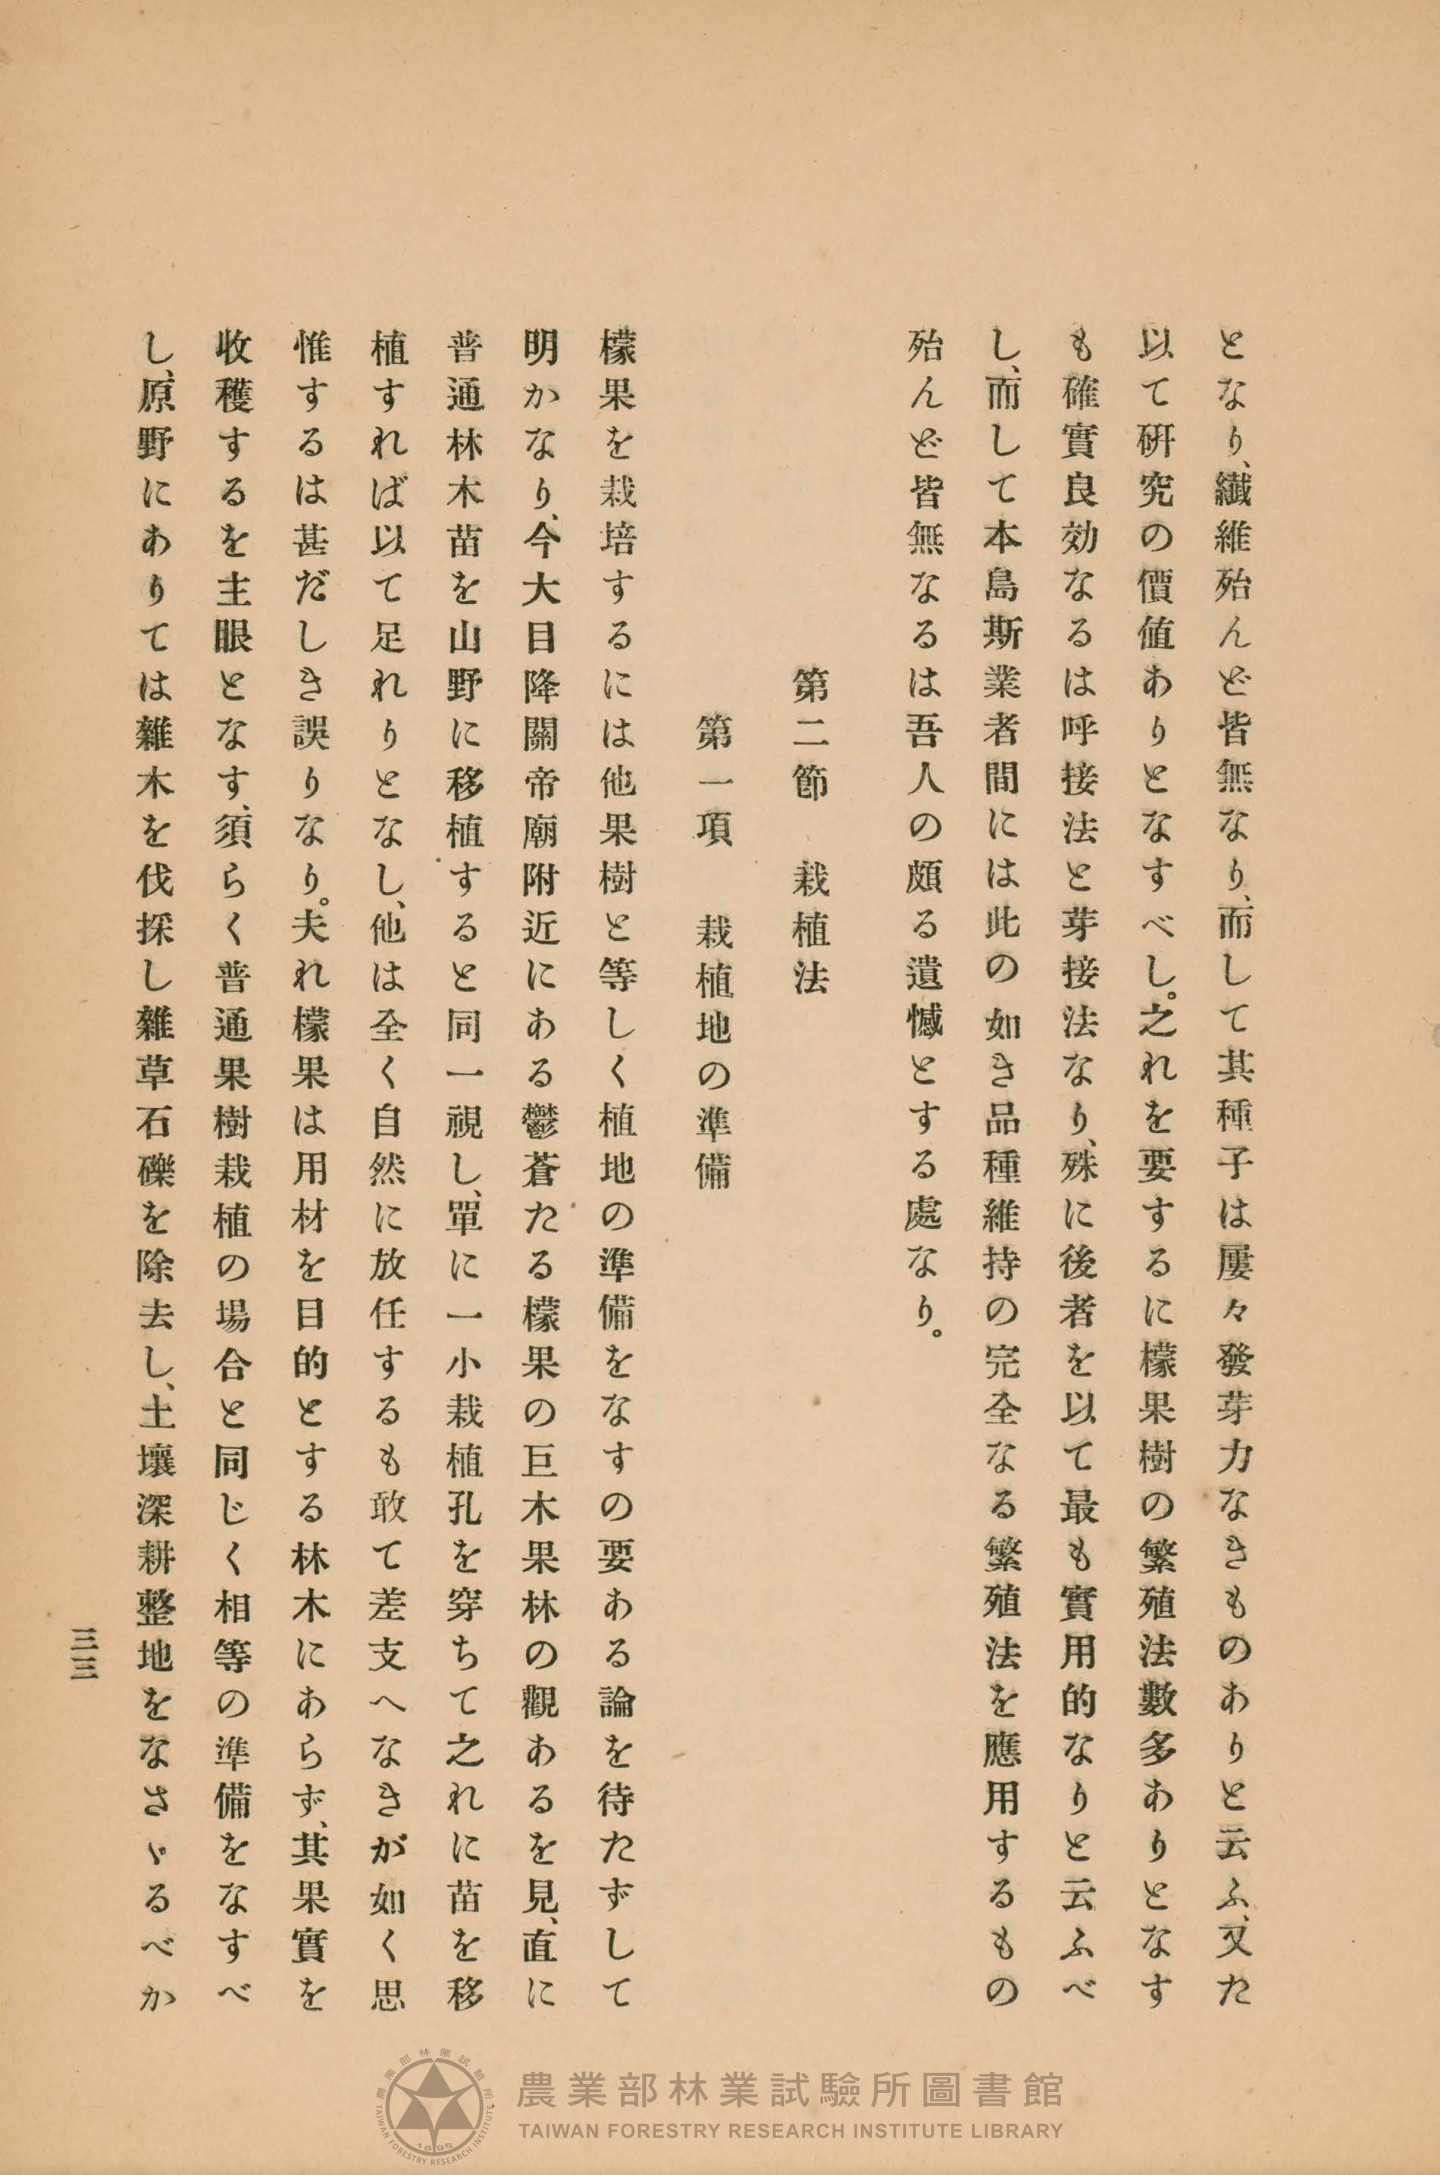 となり、纎維殆んど皆無なり、而して其種子は屢々發芽力なきものありと云ふ、又た
以て硏究の價値ありとなすべし。之れを要するに檬果樹の繁殖法數多ありとなす
も確實良効なるは呼接法と芽接法なり、殊に後者を以て最も實用的なりと云ふべ
し、而して本島斯業者間には此の如き品種維持の完全なる繁殖法を應用するもの
殆んど皆無なるは吾人の頗る遺憾とする處なり。
第二節　栽植法
第一項　栽植地の準備
檬果を栽培するには他果樹と等しく植地の準備をなすの要ある論を待たずして
明かなり、今大目降關帝廟附近にある鬱蒼たる檬果の巨木果林の觀あるを見、直に
普通林木苗を山野に移植すると同一視し、單に一小栽植孔を穿ちて之れに苗を移
植すれば以て足れりとなし、他は全く自然に放任するも敢て差支へなきが如く思
惟するは甚だしき誤りなり。夫れ檬果は用材を目的とする林木にあらず、其果實を
收穫するを主眼となす、須らく普通果樹栽植の場合と同じく相等の準備をなすべ
し、原野にありては雜木を伐採し雜草石礫を除去し、土壤深耕整地をなさゝるべか
三三
農業部林業試驗所圖書館
TAIWAN FORESTRY RESEARCH INSTITUTE LIBRARY
農業部林業試驗所
TAIWAN FORESTRY RESEARCH INSTITUTE
1896